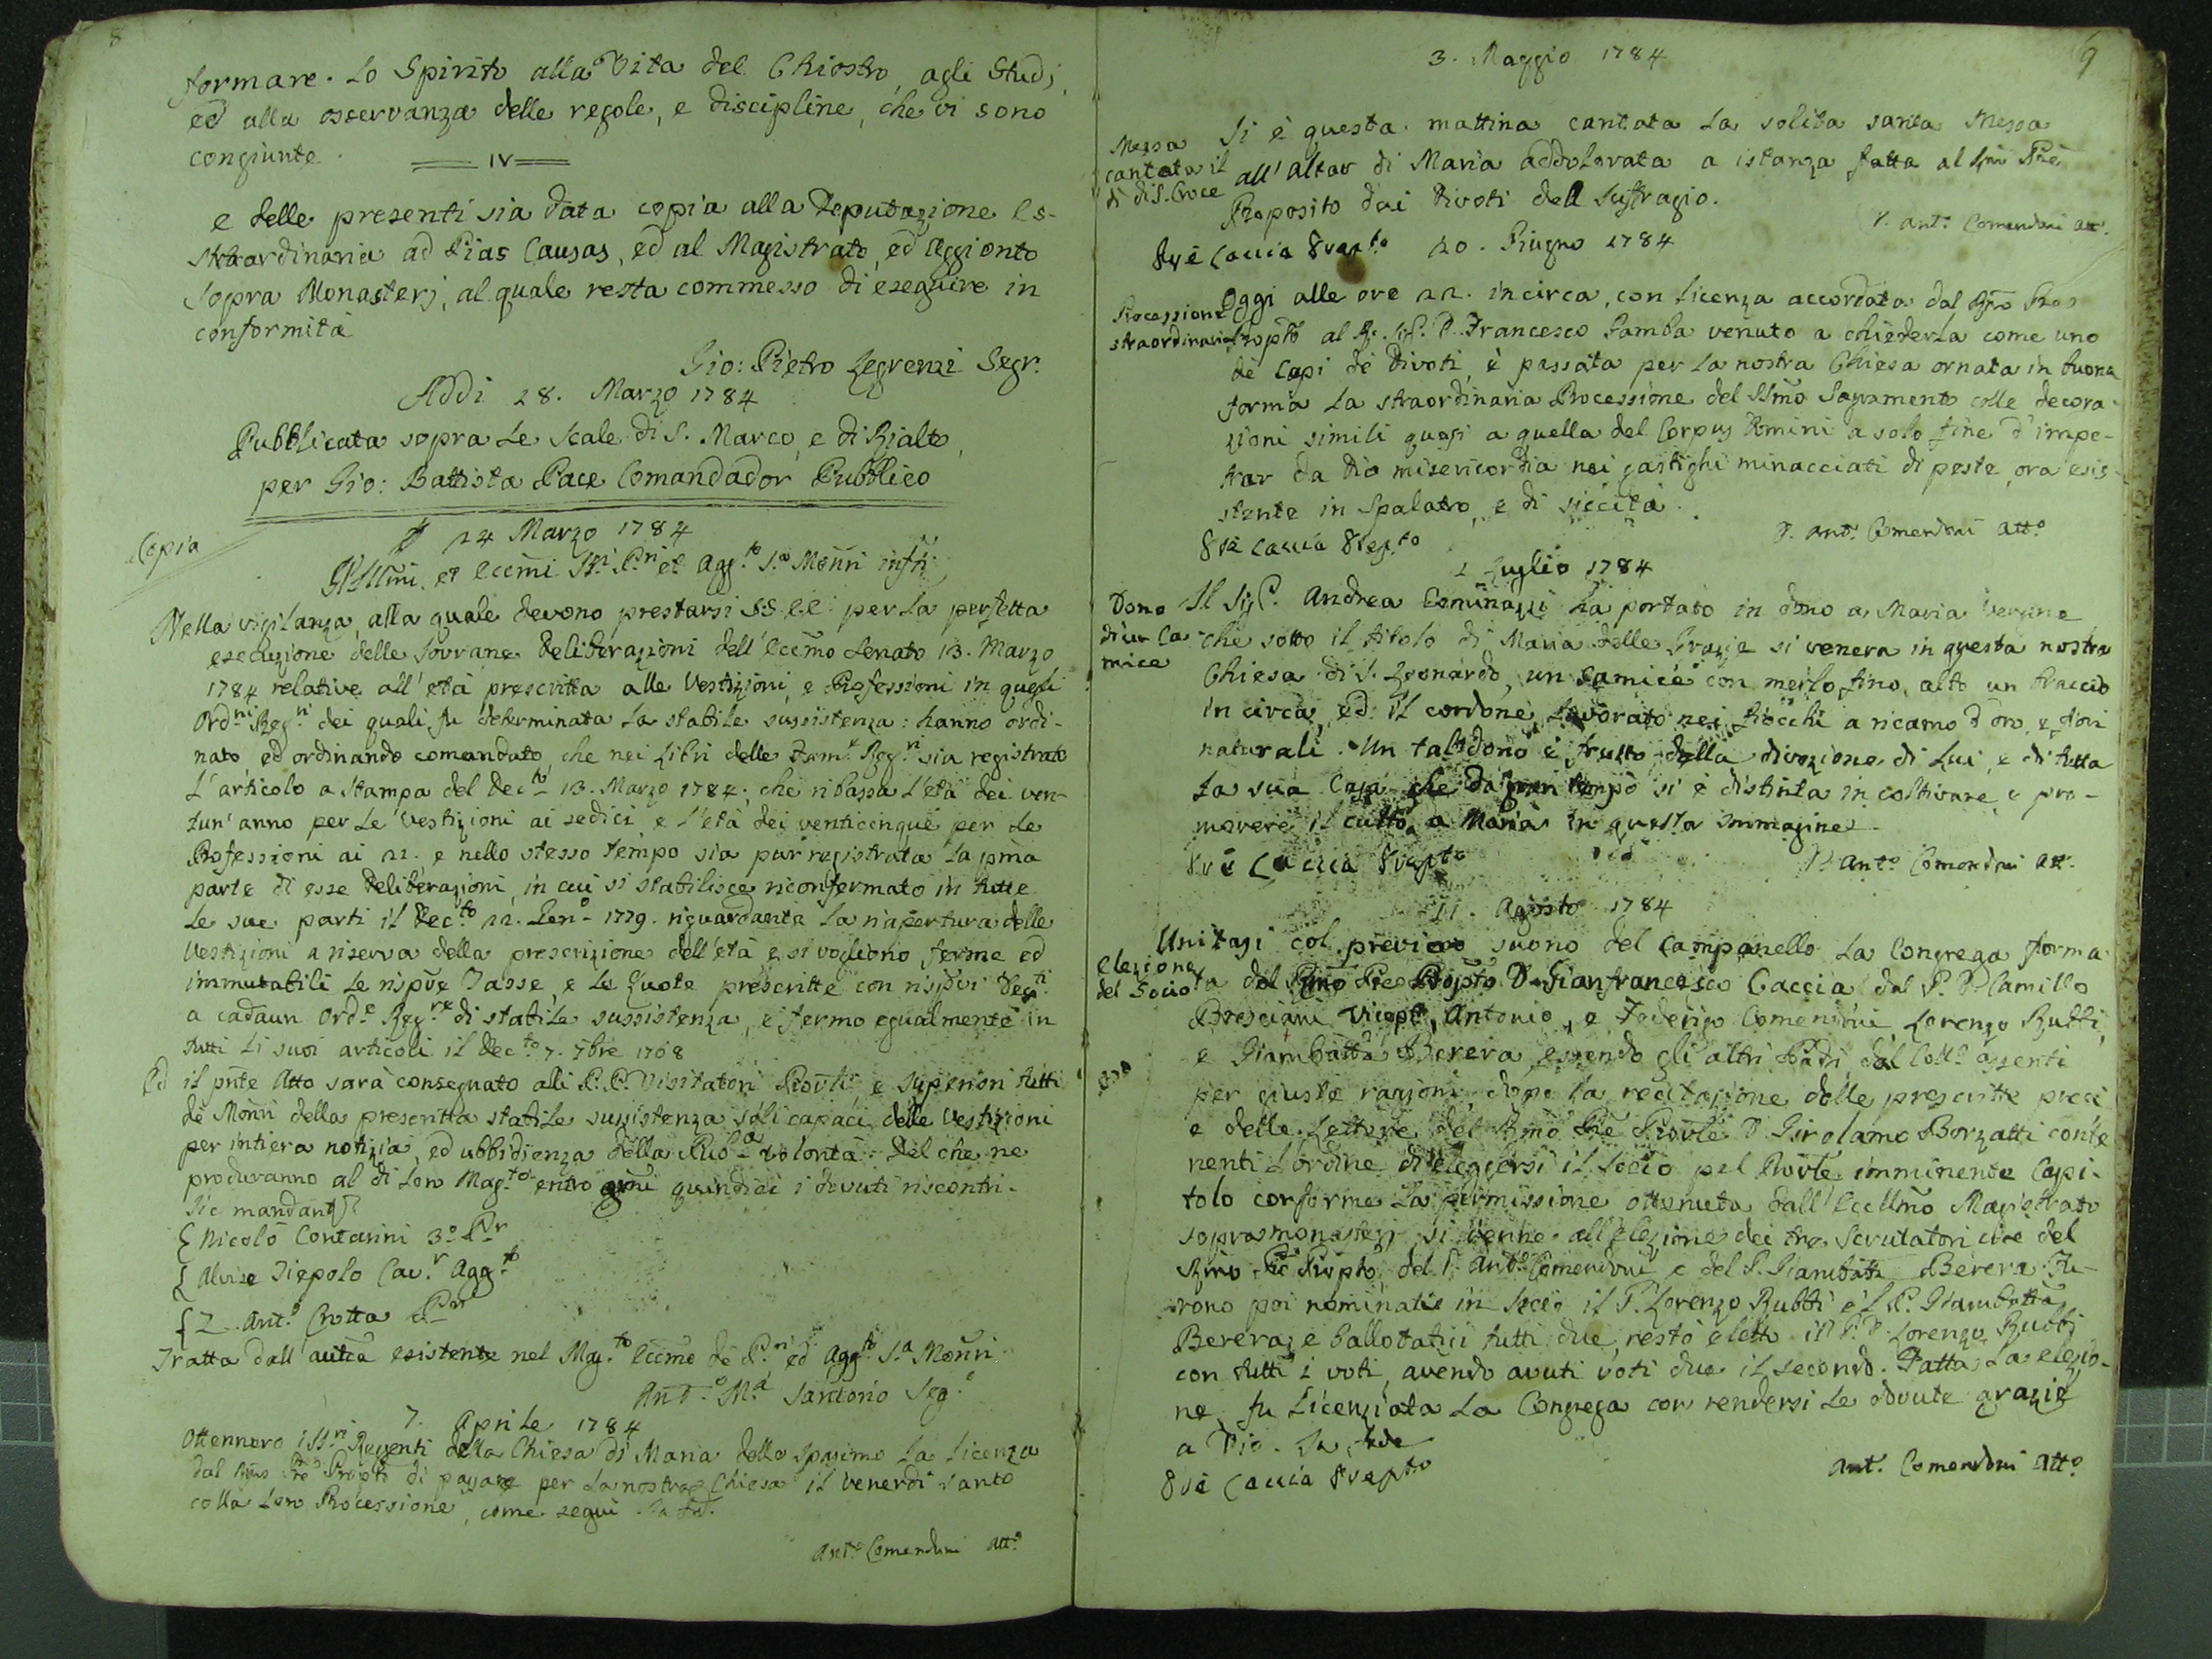 8
formare. Lo Spirito alla Vita del Chiostro, agli Studj,
ed alla osservanza delle regole, e discipline, che vi sono
congiunte.
IV
e delle presenti sia data copia alla Deputazione Es-
straordinaria ad Pias Causas, ed al Magistrato, ed Aggionto
sopra Monasterj, al quale resta commesso di eseguire in
conformità
Gio: Pietro Legrenzi Segr.
Addi 28. Marzo 1784
Pubblicata sopra le scale di S. Marco, e di Rialto,
per Gio: Battista Pace Comandador Pubblico
Copia
24 Marzo 1784
Gl'Illmi. et Eccmi Sri Pri et Agg.to S.a Monri infti
Nella vigilanza, alla quale devono prestarsi SS. EE. per la perfetta
esecuzione delle Sovrane Deliberazioni dell'Eccmo Senato 13. Marzo
1784 relative all'età prescritta alle Vestizioni, e Professioni in quegli
Ord.ni Reg.ri dei quali fu determinata la stabile sussistenza: hanno ordi-
nato, ed ordinando comandato, che nei Libri delle Fam.e Reg.ri sia registrato
L'articolo a stampa del Dec.to 13. Marzo 1784, che ribassa l'età dei ven-
tun'anno per le Vestizioni ai sedici, e l'età dei venticinque per le
Professioni ai 21. e nello stesso tempo sia pur registrata la pma
parte di esse Deliberazioni, in cui si stabilisce riconfermato in tutte
le sue parti il Dec.to 22. Gen.o 1779. riguardante la riapertura delle
Vestizioni a riserva della prescrizione dell'età e si vogliono ferme ed
immutabili le rispve Tasse, e le Quote prescritte con rispvi Decti.
a cadaun Ord.e Reg.re di stabile sussistenza, e fermo egualmente in
tutti li suoi articoli il Dec.to 7. 7bre 1768
Ed il pnte Atto sarà consegnato alli P.P. Visitatori Provli. e Superiori tutti
de Monri della prescritta stabile sussistenza soli capaci delle Vestizioni
per intiera notizia, ed ubbidienza della Pub.a volontà. Del che ne
produranno al di Lon Mag.to entro gni quindici i dovuti riscontri.
Sic mandant.
{ Nicolò Contarini 3.o Pr
{ Alvise Tiepolo Cav.r Agg.to
{ Z. Ant.o Crotta Pr
Tratta dall'autca esistente nel Mag.to Eccmo de P.ri ed Agg.to S.a Monri
Ant.o M.a Santorio Seg.o
7. Aprile 1784
Ottennero i SS.ri Reggenti della Chiesa di Maria dello Spasimo la licenza
dal Rmo Pre Propto di passare per la nostra Chiesa il venerdì santo
colla lon Processione, come seguì. In fede
Ant.o Comenduni Att.o
9
3. Maggio 1784
Messa
cantata il
dì di S. Croce
Si è questa mattina cantata la solita santa Messa
all'altar di Maria addolorata a istanza fatta al Rmo Pre
Proposito dai Divoti dell Suffragio.
P. Ant.o Comenduni Att.
Gio Caccia Prep.to
20. Giugno 1784
Processione
straordinaria
Oggi alle ore 22. incirca, con licenza accordata dal Rmo Pre
Propto al R. P. D. Francesco Bamba venuto a chiederla come uno
de Capi de Divoti, è passata per la nostra Chiesa ornata in buona
forma la straordinaria Processione del SSmo Sagramento colle decora-
zioni simili quasi a quella del Corpus Domini a solo fine d'impe-
trar da Dio misericordia nei gastighi minacciati di peste, ora esis-
stente in Spalatro, e di siccità.
P. Ant.o Comenduni Att.o
Gio Caccia Prep.to
2 Luglio 1784
Dono
di un Ca-
mice
Il Sig. Andrea Cominazzi ha portato in dono a Maria Vergine
che sotto il titolo di Maria delle Grazie si venera in questa nostra
Chiesa di S. Leonardo, un Camice con merlo fino, alto un braccio
in circa, ed il cordone, lavorato nei fiocchi a ricamo d'oro, e fiori
naturali. Un tal dono è frutto della divozione di Lui, e di tutta
la sua Casa che da gran tempo si è distinta in coltivare, e pro-
movere il culto a Maria in questa Immagine.
P. Ant.o Comenduni Att.
Gio Caccia Prepto
11. Agosto 1784
Elezione
del Socio
Unitasi col previo suono del Campanello la Congrega forma-
ta dal Rmo Pre Propto D. Gianfrancesco Caccia dal P. D. Camillo
Bresciani Vicepto, Antonio, e Federigo Comenduni, Lorenzo Rubbi,
e Giambatta Berera, essendo gli altri Padri dal Coll.o assenti
per giuste ragioni, dopo la recitazione delle prescritte preci
e delle Lettere del Rmo Pre Provle D. Girolamo Borzatti conte-
nenti l'ordine di eleggersi il Socio pel Provle imminente Capi-
tolo conforme la permissione ottenuta dall'Eccllmo Magistrato
sopra monasterj, si venne all'elezione dei tre Scrutatori cioè del
Rmo Pre Propto, del P. Ant.o Comenduni e del P. Giambatta Berera. Fu-
rono poi nominati in Socio il P. Lorenzo Rubbi e il P. Giambatta
Berera, e ballotatisi tutti due, restò eletto il P. D. Lorenzo Rubbi
con tutti i voti, avendo avuti voti due il secondo. Fatta la elezio-
ne, fu licenziata la Congrega con rendersi le dovute grazie
a Dio. In fede
Ant.o Comenduni Att.o
Gio Caccia Prepto